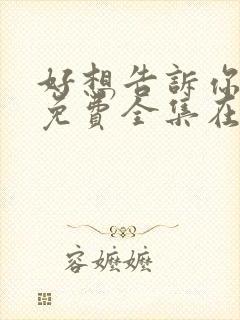 好想告訴你
免費全集在
容嬤嬤